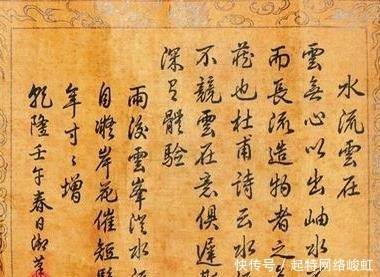 水流雲在
雲無心以出岫水
而長流造物者之
藏也杜甫詩云水
不競雲在意俱遲斯
深體驗
雨後雲峯澄水流
自凝岸花催短
年寸〻增
乾隆壬午春日御筆
快传号 / 起特网络峻虹